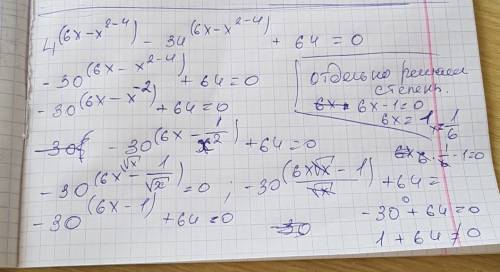 4^(6x-x^2-4) - 34^(6x-x^2-4) + 64 = 0
-30^(6x-x^2-4) + 64 = 0
-30^(6x-x^-2) + 64 = 0
-30^(6x - 1/x^2) + 64 = 0
-30^(6x^√x - 1/√x) = 0 ; -30^((6x√x - 1)/√x) + 64 =
-30^(6x-1) + 64 = 0
отдельно решаем
степень.
6x 6x-1=0
6x=1 x=1/6
6 · 1/6 - 1=0
-30^0 + 64 = 0
-30 1 + 64 ≠ 0